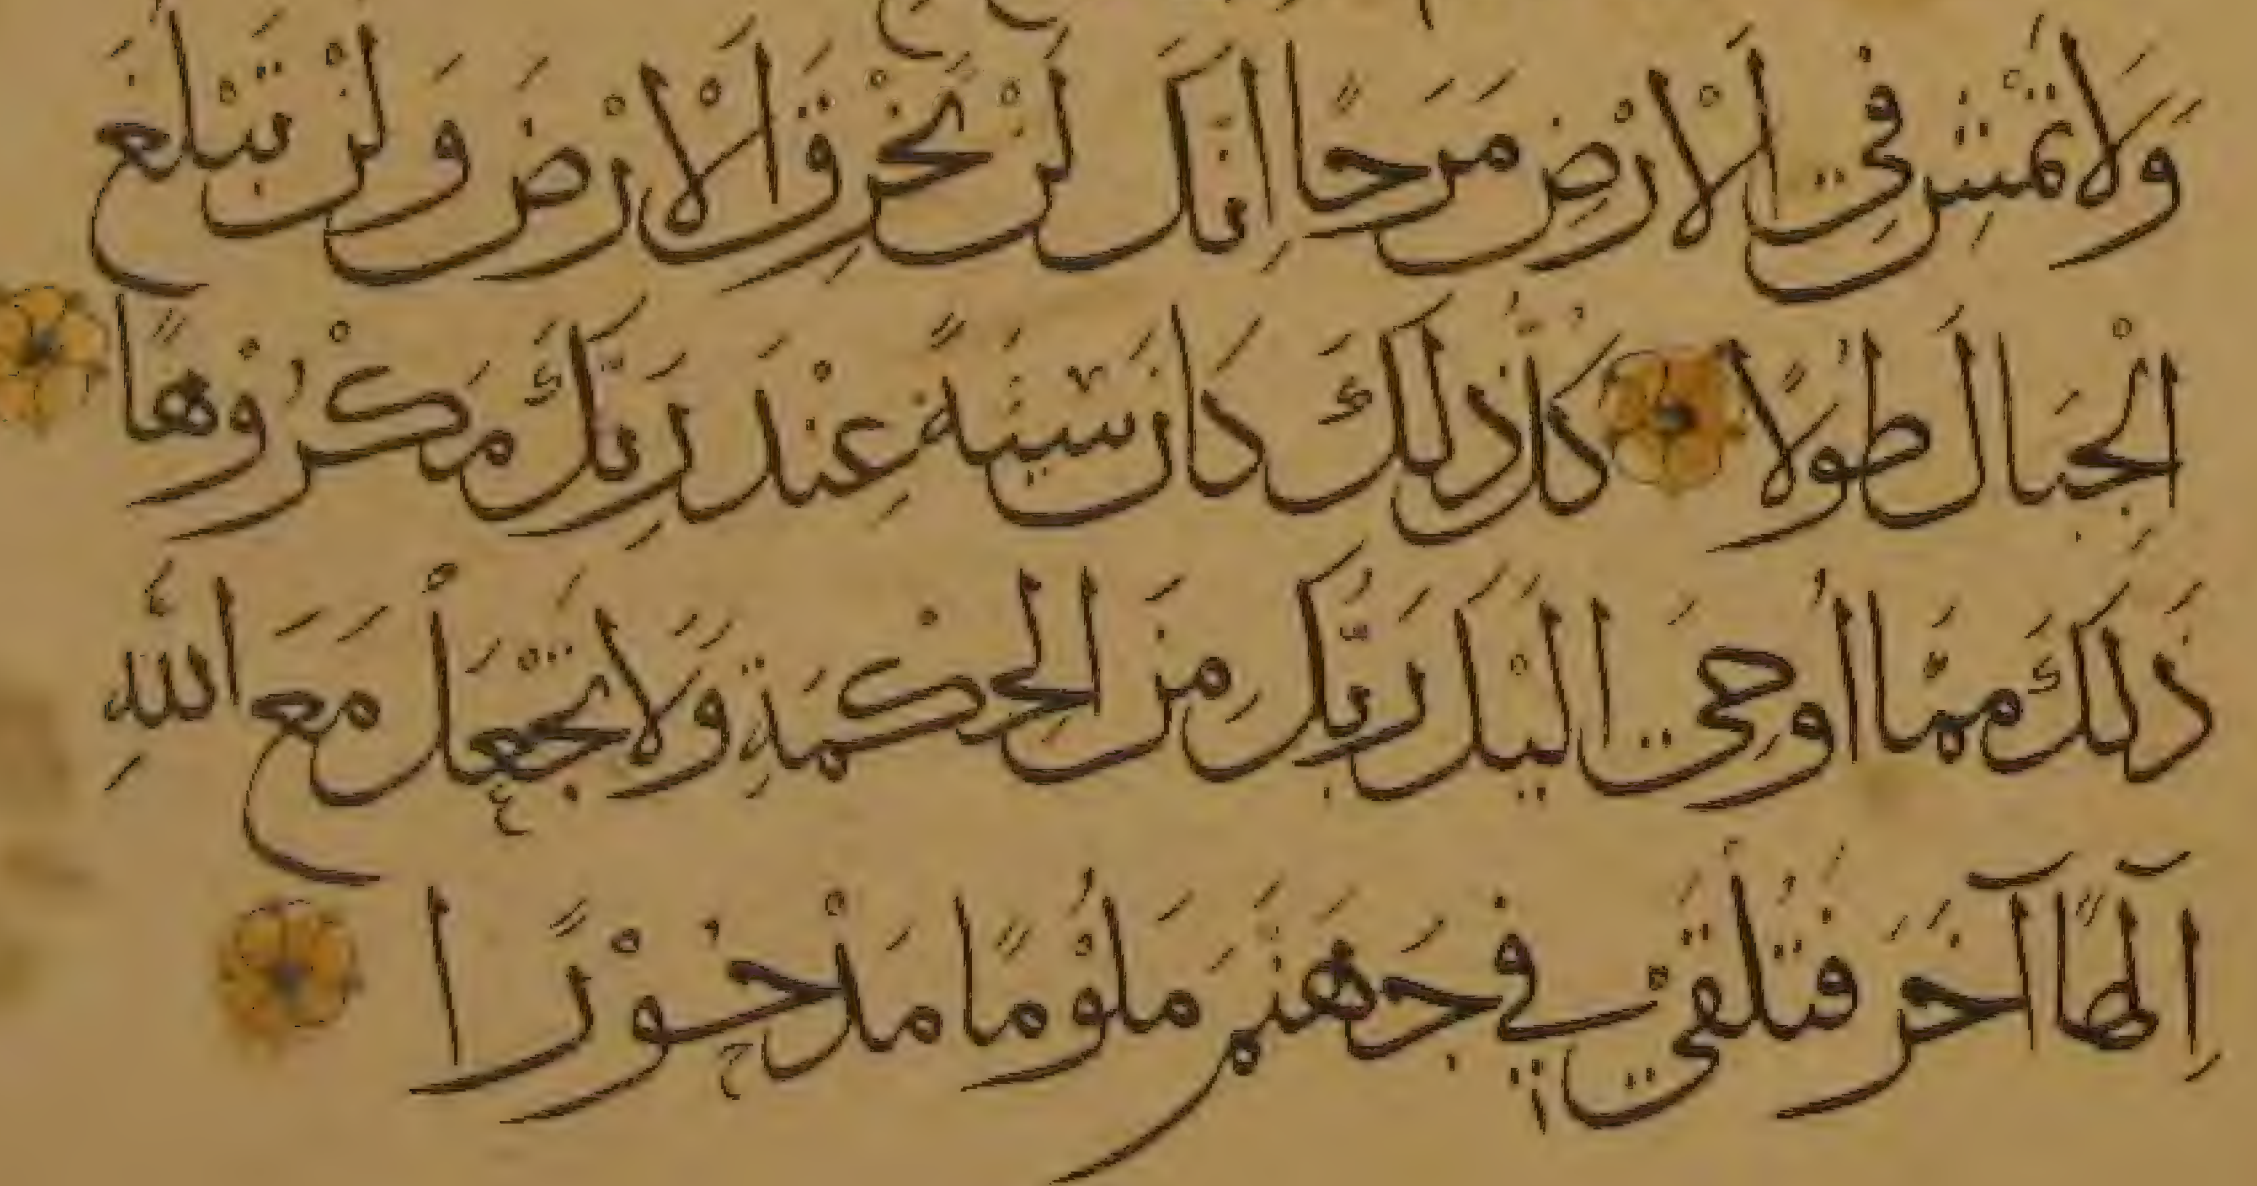 وَلَا تَمْشِ فِي الْأَرْضِ مَرَحًا إِنَّكَ لَنْ تَخْرِقَ الْأَرْضَ وَلَنْ تَبْلُغَ
الْجِبَالَ طُولًا كُلُّ ذَلِكَ كَانَ سَيِّئَةً عِنْدَ رَبِّكَ مَكْرُوهًا
ذَلِكَ مِمَّا أَوْحَى إِلَيْكَ رَبُّكَ مِنَ الْحِكْمَةِ وَلَا تَجْعَلْ مَعَ اللَّهِ
إِلَهًا آخَرَ فَتُلْقَى فِي جَهَنَّمَ مَلُومًا مَدْحُورًا